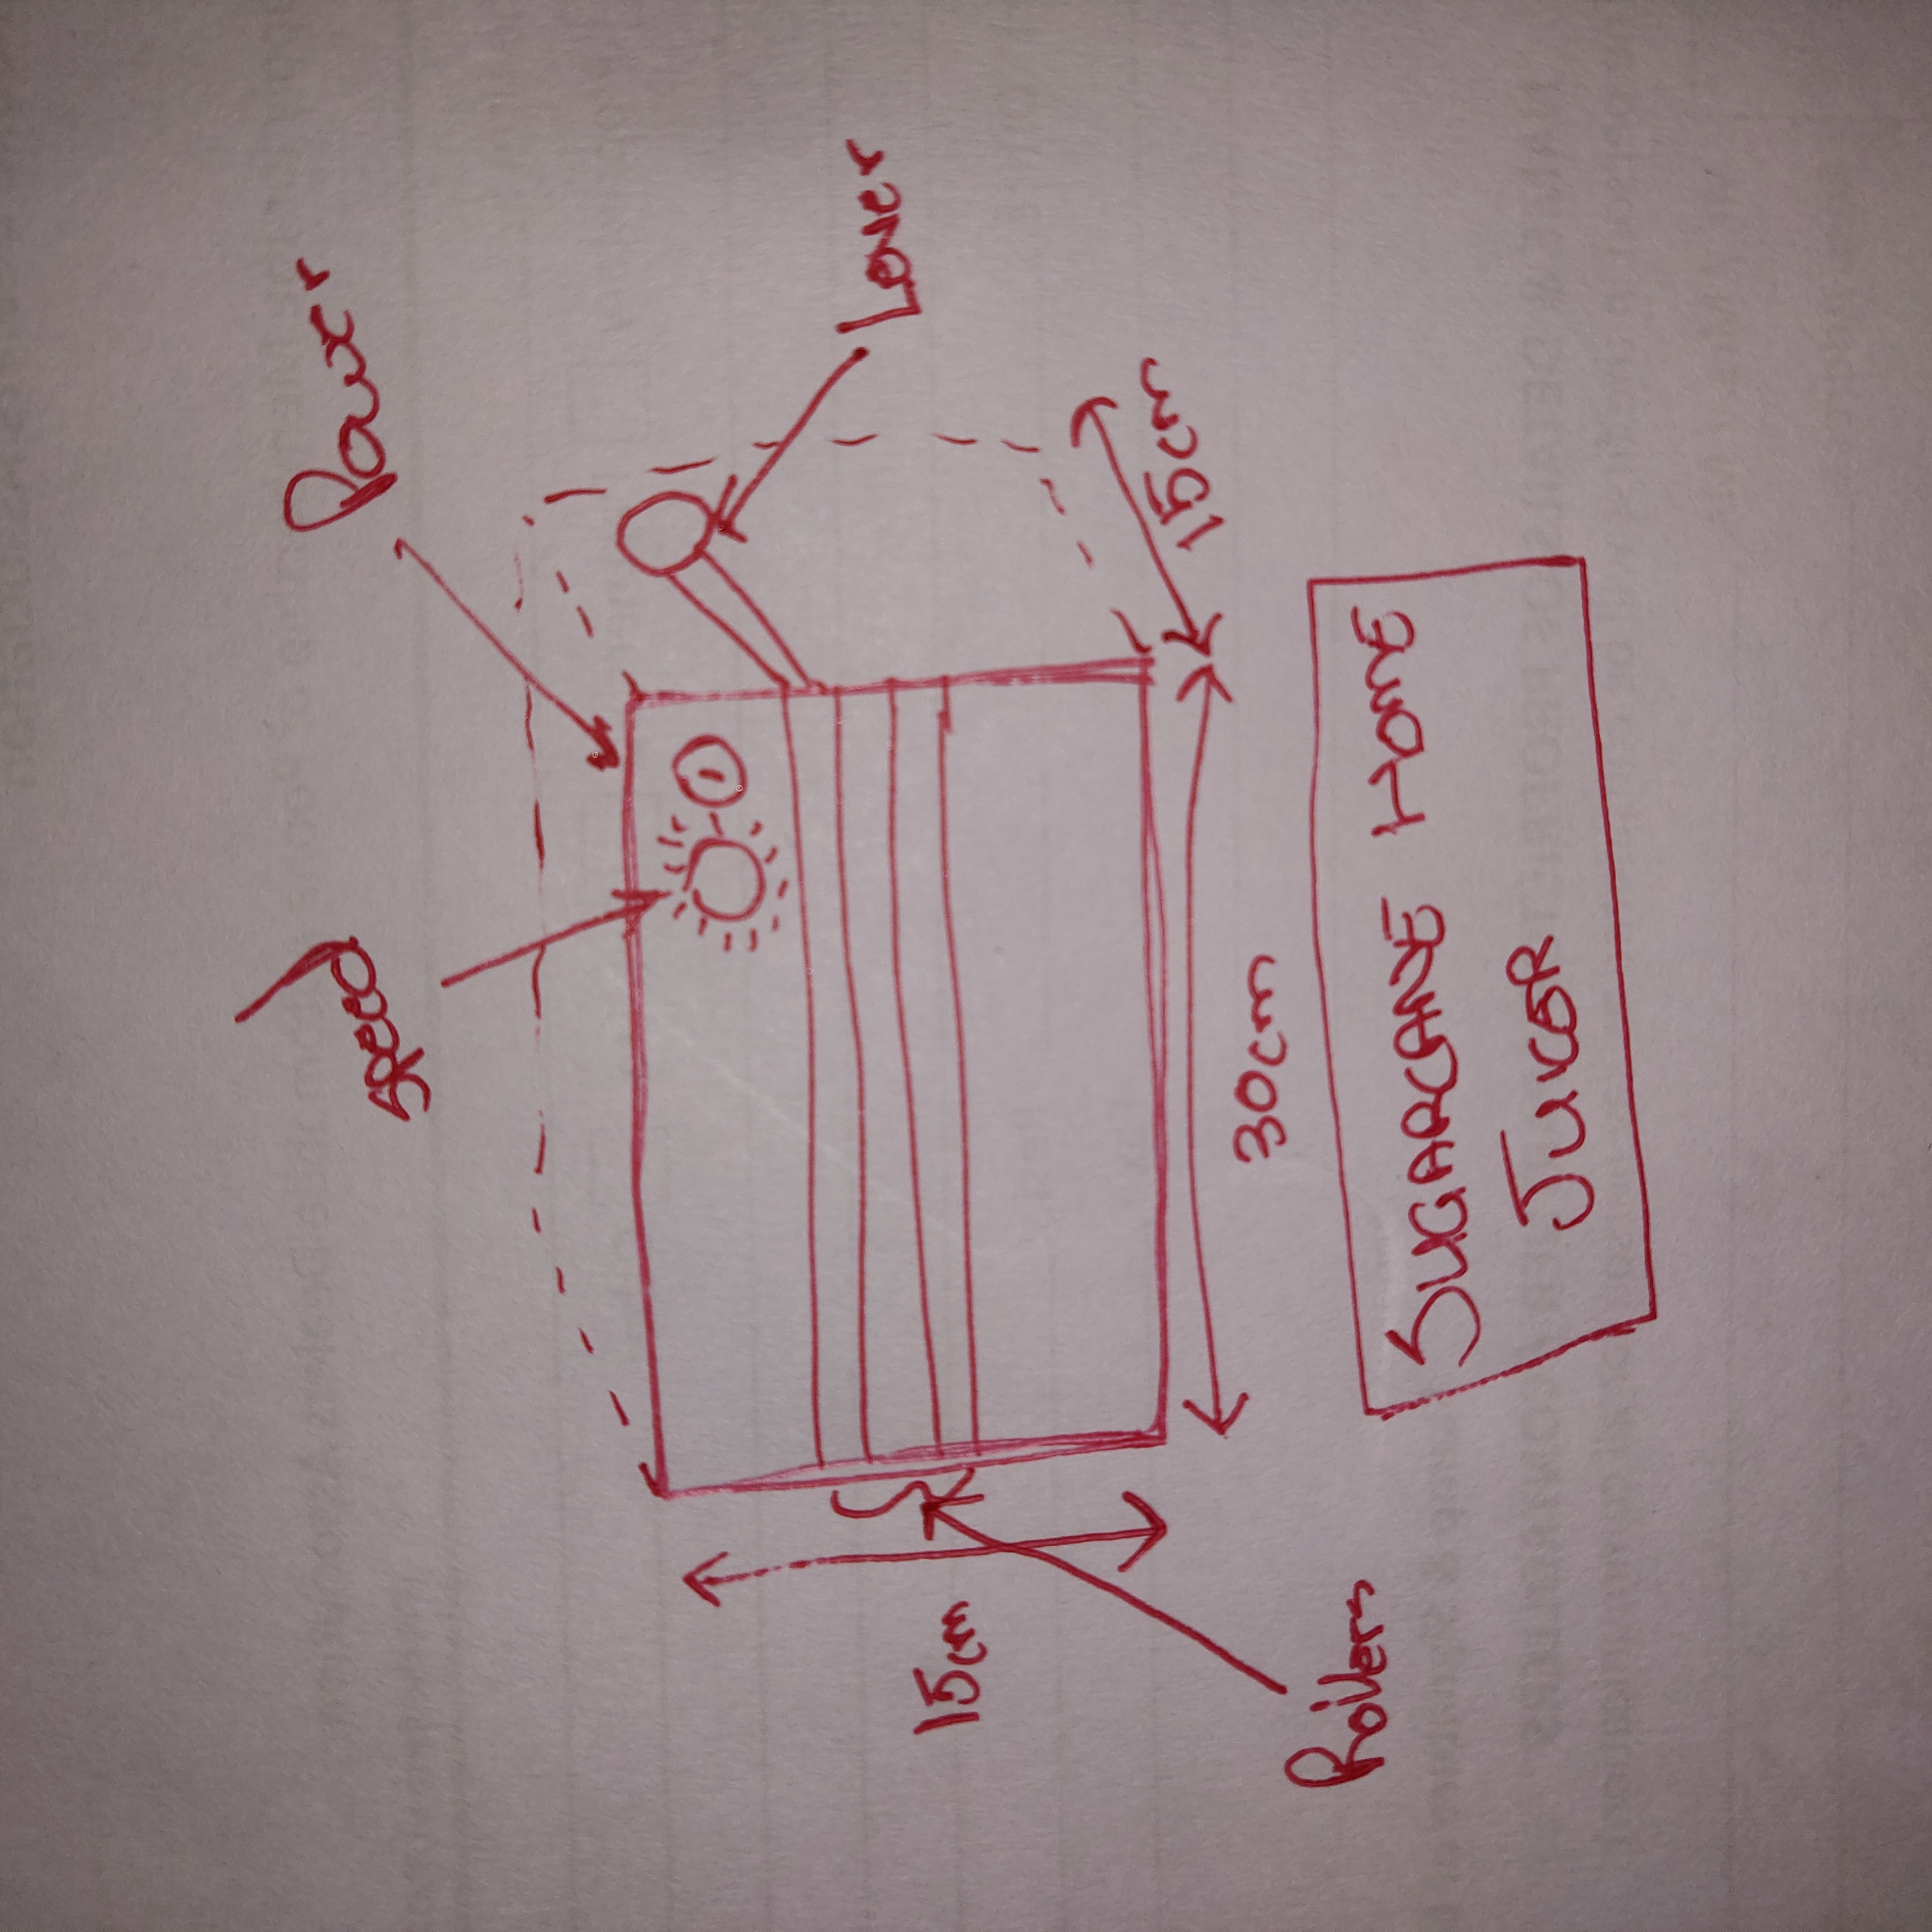 Speed
Power
Lever
15cm
15cm
30cm
Rollers
SUGARCANE HOME
JUICER